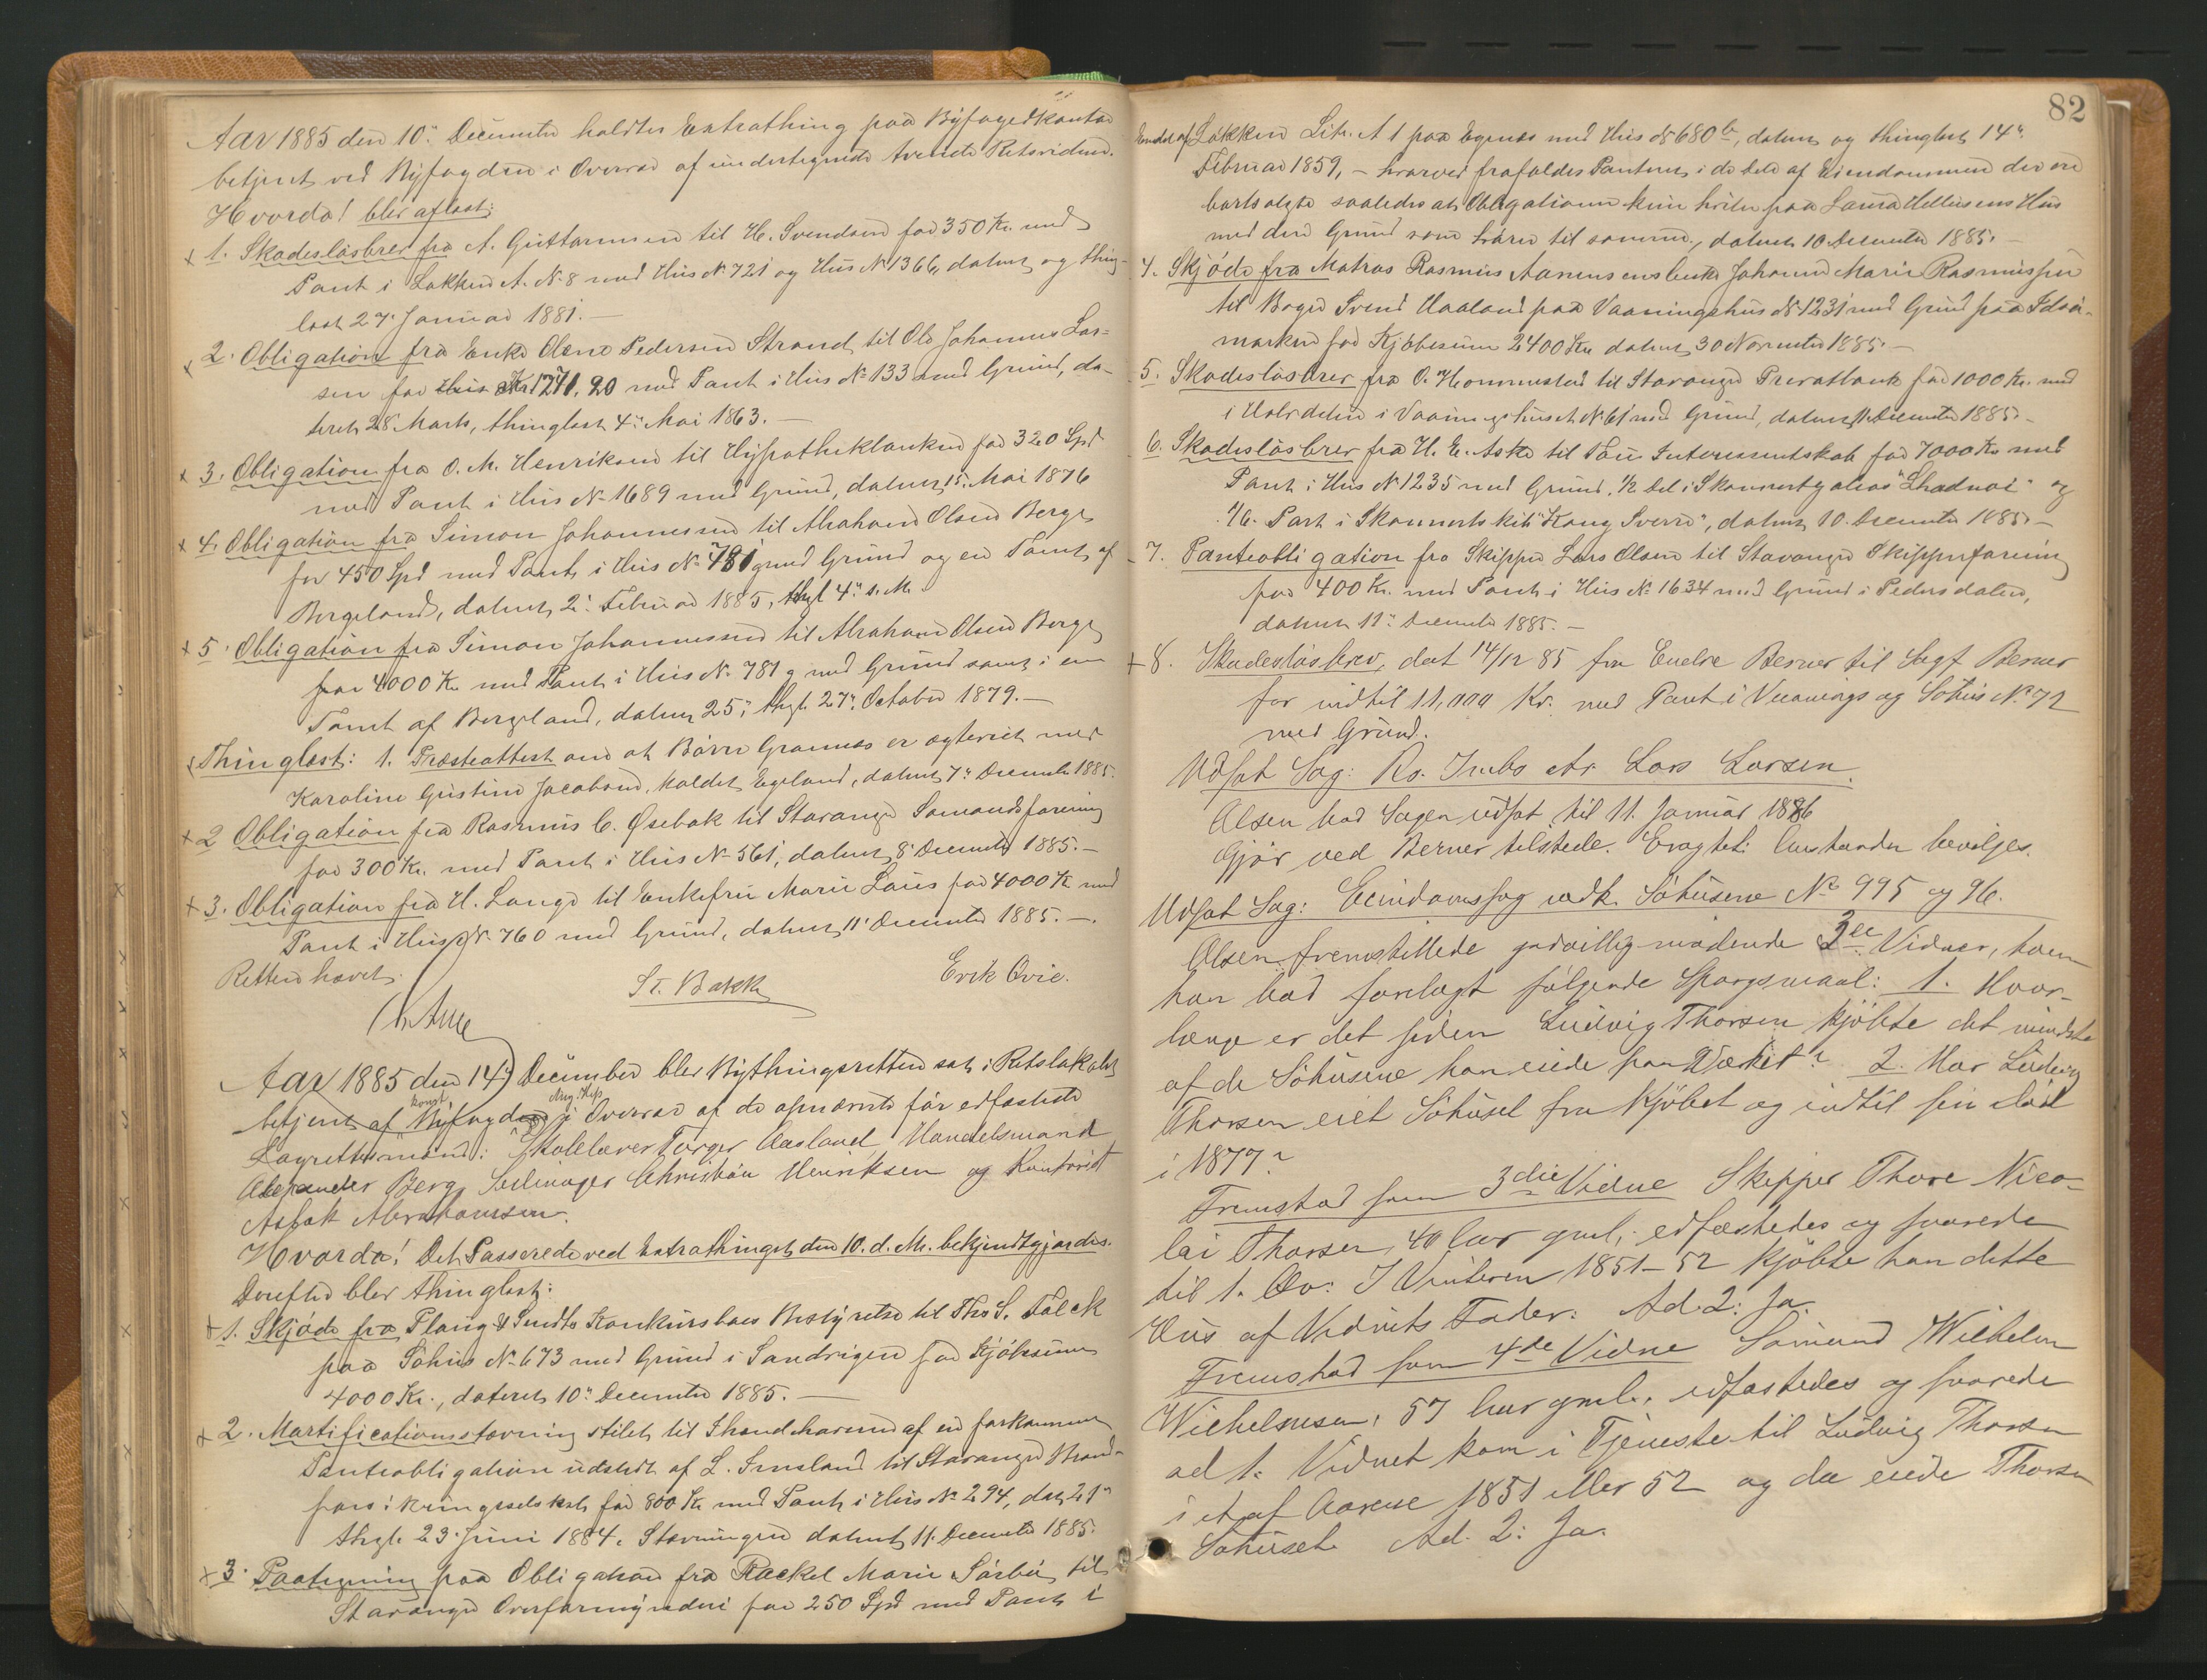 Aar 1885 den 10de December holdtes Extrathing paa Byfogedkontoret
betjent ved Byfogden i Overvær af undertegnede tvende Retsvidner.
Hvorda! blev aflæst:
x 1. Skadesløsbrev fra A. Guttormsen til H. Svendsen for 350 Kr. med
Pant i Løkken A. No 8 med Hus No 721 og Hus No 1366, dateret og thing-
læst 27. Januar 1881.—
x 2. Obligation fra Enke Olene Pedersen Strand til Ole Johannes Lar-
sen for Kr 1271,20 med Pant i Hus No 133 med Grund, da-
teret 28. Marts, thinglæst 4de Mai 1863.—
x 3. Obligation fra O. M. Henriksen til Hypothekbanken for 320 Spd
med Pant i Hus No 1689 med Grund, dateret 15. Mai 1876
x 4. Obligation fra Simon Johannessen til Abraham Olsen Berge
for 450 Spd med Pant i Hus No 781 g med Grund og en Tomt af
Bergeland, dateret 2. Februar 1885, thgl 4. s. M.
x 5. Obligation fra Simon Johannessen til Abraham Olsen Berge
for 4000 Kr. med Pant i Hus No 781 g med Grund samt i en
Tomt af Bergeland, dateret 25de, thgl. 27de October 1879.—
x Thinglæst: 1. Præsteattest om at Børre Grannes er ægteviet med
Karoline Gustine Jacobsen, kaldet Egeland, dateret 7de December 1885.
x 2 Obligation fra Rasmus C. Øsebak til Stavanger Sømandsforening
for 300 Kr. med Pant i Hus No 561, dateret 8 December 1885.—
x 3. Obligation fra H. Lange til Enkefru Marie Laus for 4000 Kr. med
Pant i Hus No 760 med Grund, dateret 11 December 1885.—.
Retten hævet.
St. Bakke Erik Qvie.
Aar 1885 den 14) December blev Bythingsretten sat i Retslokalet
konst. Aug. Kiss
betjent af Byfogden i Overvær af de opnævnte før edfæstede
Lagrettemænd: Skolelærer Torger Aasland, Handelsmand
Alexander Berg, Seilmager Christian Henriksen og Kontorist
Aslak Abrahamsen.
Hvorda! Det Passerede ved Extrathinget den 10. d. M. bekjendtgjordes.
Derefter blev thinglæst:
x 1. Skjøde fra Plaug & Sundts Konkursboes Bestyrelse til Ths S. Falck
paa Søhus No 673 med Grund i Sandvigen for Kjøbesum
4000 Kr., dateret 10de December 1885.—
x 2. Mortificationsstævning stilet til Ihændehaveren af en forkommen
Panteobligation udstedt af L. Imsland til Stavanger Brand-
forsikringsselskab for 800 Kr. med Pant i Hus No 294, dat. 21de
thgl. 23 Juni 1884. Stævningen dateret 11. December 1885.
x 3. Paategning paa Obligation fra Rackel Marie Sørbø til
Stavanger Overformynderi for 250 Spd med Pant i
82
Endel af Løkken Litr. A 1 paa Egenes med Hus No 680 b, dateret og thinglæst 14de
Februar 1859, — hvorved frafaldes Panteret i de dele af Eiendommen der ere
bortsolgte saaledes at Obligationen kun hviler paa Laura Hellisens Hus
med den Grund som hører til samme, dateret 10 December 1885.—
4. Skjøde fra Matros Rasmus Aanensens Enke Johanne Marie Rasmussen
til Bager Svend Haaland paa Vaaningshus No 1231 med Grund paa Ids-
marken for Kjøbesum 2400 Kr. dateret 30 November 1885.—
5. Skadesløsbrev fra O. Hommestad til Stavanger Privatbank for 1000 Kr. med
i Halvdelen i Vaaningshuset No 61 med Grund, dateret 11 December 1885.—
6. Skadesløsbrev fra H. E. Aske til Tou Interessentskab for 7000 Kr med
Pant i Hus No 1235 med Grund, 1/2 Del i Skonnertgalias "Chadnai" og
1/6. Part i Skonnertskib "Kong Sverre", dateret 10. December 1885.—
7. Panteobligation fra Skipper Lars Olsen til Stavanger Skipperforening
for 400 Kr. med Pant i Hus No 1634 med Grund i Pedersdalen,
dateret 11de December 1885.—
x 8. Skadesløsbrev, dat 14/12 85 fra Endre Berner til Sagf Berner
for indtil 11,000 Kr. med Pant i Vaanings og Søhus No. 72
med Grund.
Udsat Sag: Ro. Imbs ctr. Lars Larsen.
Olsen bad Sagen udsat til 11. Januar 1886
Gjør ved Berner tilstede. Eragtet: Anstanden bevilges.
Udsat Sag: Eiendomssag vedk. Søhusene No 995 og 96.
Olsen fremstillede godvillig mødende 2de Vidner, hvem
han bad forelagt følgende Spørgsmaal: 1. Hvor-
længe er det siden Ludvig Thorsen kjøbte det mindste
af de Søhusene han eiede paa Værket? 2. Har Ludvig
Thorsen eiet Søhuset fra Kjøbet og indtil sin død
i 1877?
Fremstod som 3die Vidne Skipper Thore Nico-
lai Thorsen, 40 Aar gml., edfæstedes og svarede
til 1. Qv: I Vinteren 1851–52 kjøbte han dette
Hus af Vidnets Fader. Ad. 2: Ja.
Fremstod som 4de Vidne Sømand Wilhelm
Wilhelmsen, 57 Aar gml., edfæstedes og svarede
ad 1. Vidnet kom i Tjeneste til Ludvig Thorsen
i et af Aarene 1851 eller 52 og da eiede Thorsen
Søhuset. Ad. 2: Ja.